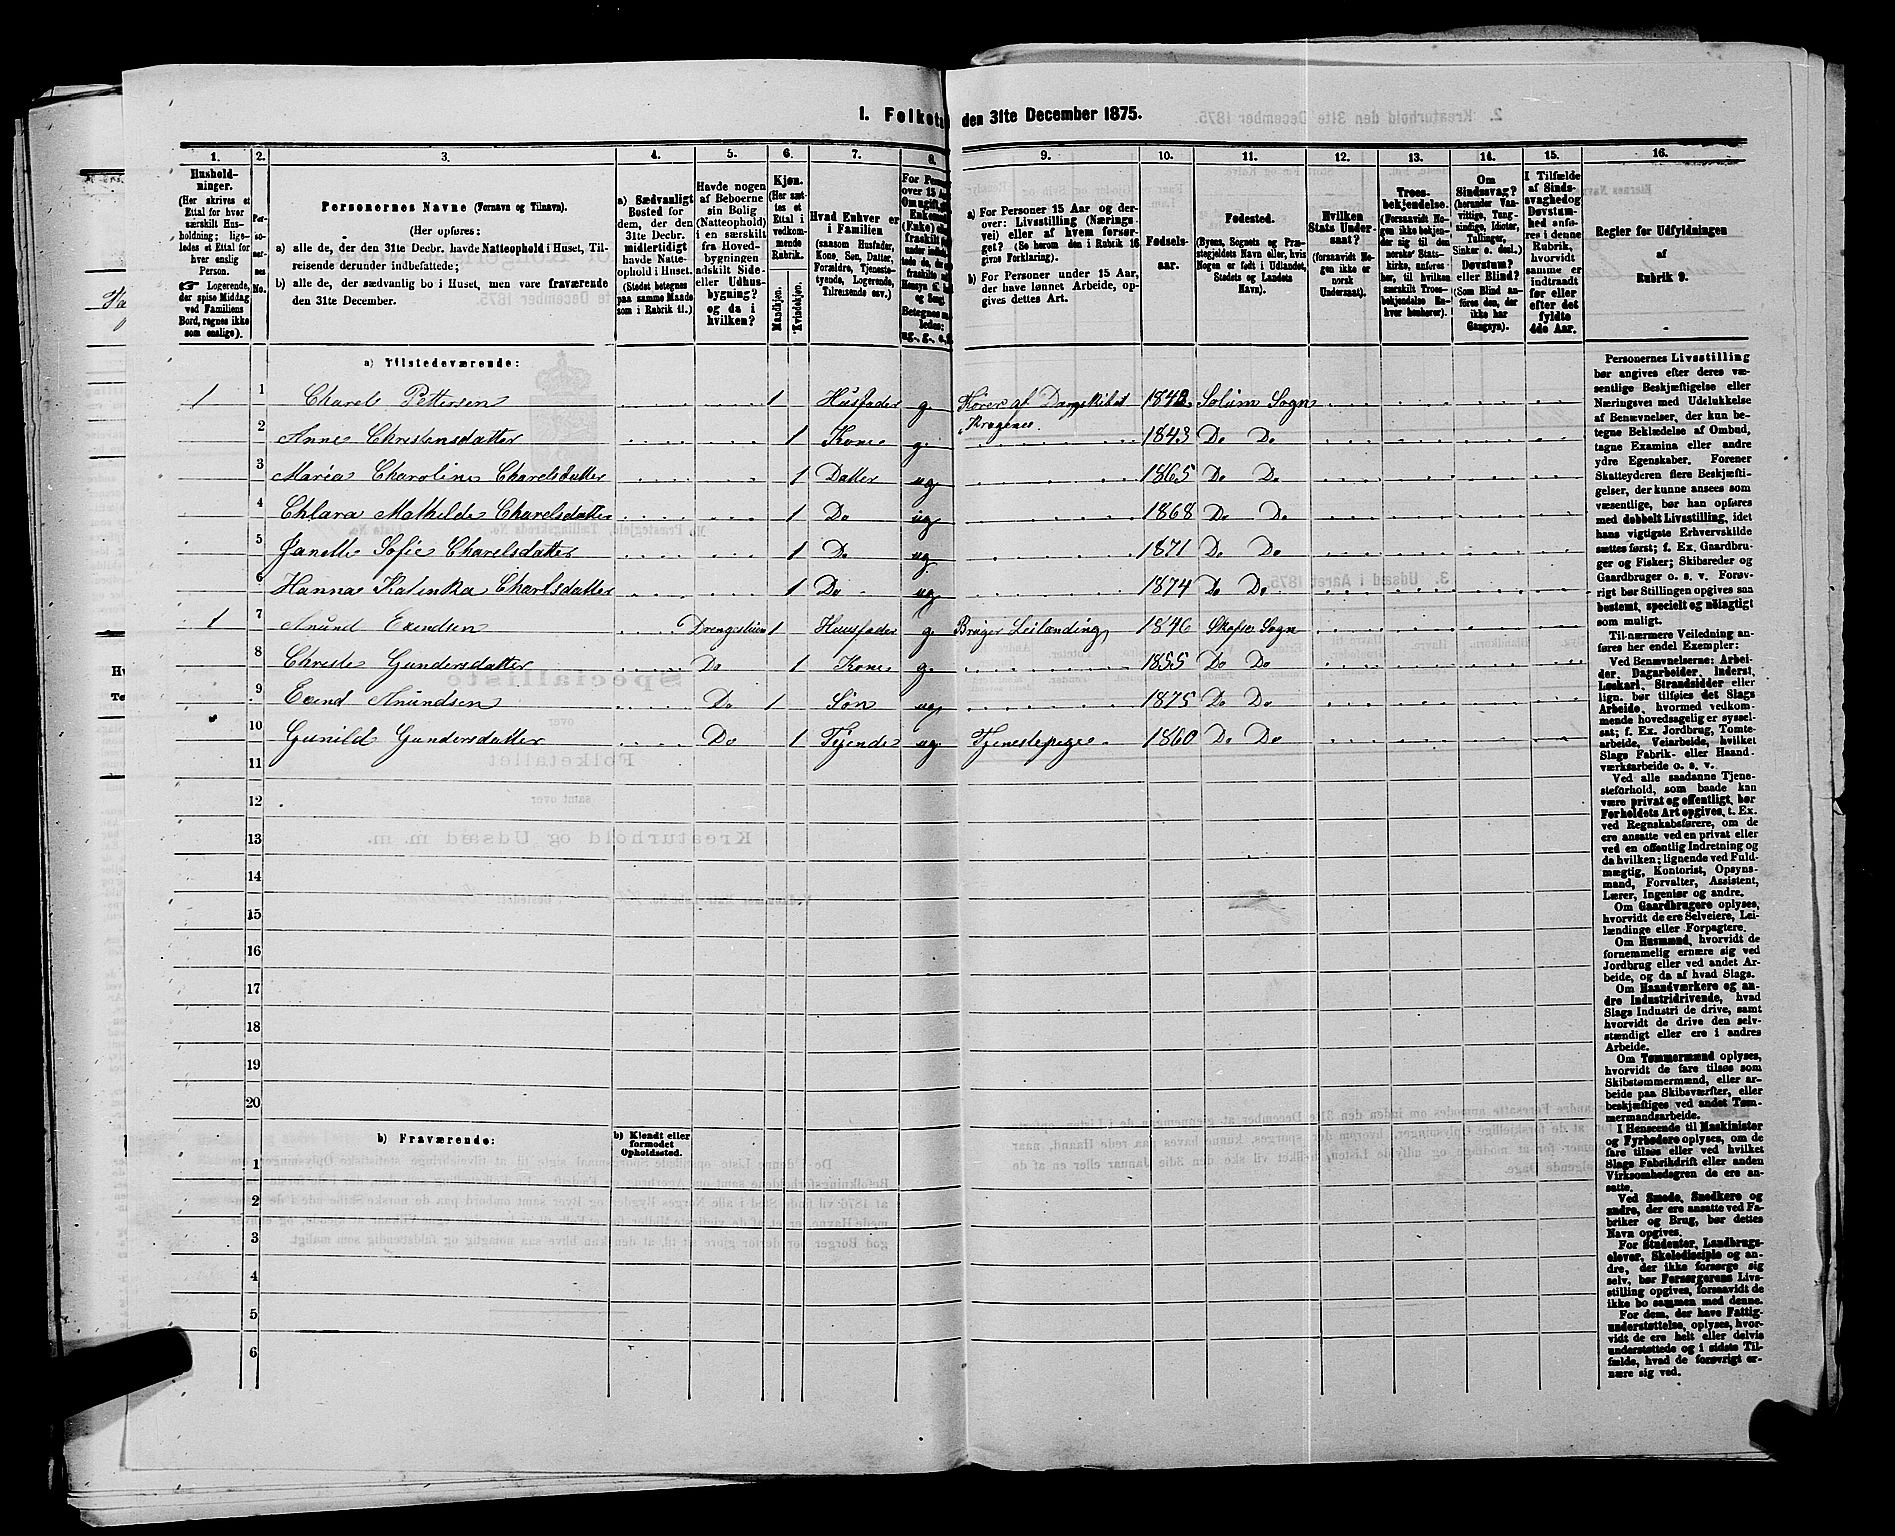 1. Folketa
den 31te December 1875.
1. 2. 3. 4. 5. 6. 7. 8. 9. 10. 11. 12. 13. 14. 15. 16.
Hushold-
ninger.
(Her skrives et
Ettal for hver
særskilt Hus-
holdning; lige-
ledes et Ettal for
hver enslig
Person.
☛ Logerende,
der spise Middag
ved Familiens
Bord, regnes ikke
som enslige).
Per-
so-
ner-
nes
No.
Personernes Navne (Fornavn og Tilnavn).
(Her opføres:
a) alle de, der den 31te Decbr. havde Natteophold i Huset, Til-
reisende derunder indbefattede;
b) alle de, der sædvanlig bo i Huset, men vare fraværende
den 31te December.
a) Sædvanligt
Bosted for
dem, der den
31te Decbr.
midlertidigt
havde Natte-
ophold i Huset.
(Stedet betegnes
paa samme Maade
som i Rubrik 11.)
Havde nogen
af Beboerne
sin Bolig
(Natteophold)
i en særskilt
fra Hoved-
bygningen
adskilt Side-
eller Udhus-
bygning?
og da i
hvilken?
Kjøn.
(Her sæt-
tes et
Ettal i
vedkom-
mende
Rubrik.
Mandkjøn.
Kvindekjøn.
Hvad Enhver er
i Familien
(saasom Husfader,
Kone, Søn, Datter,
Forældre, Tjeneste-
tyende, Logerende,
Tilreisende osv.)
a) For Personer 15 Aar og der-
over: Livsstilling (Nærings-
vei) eller af hvem forsør-
get? (Se herom den i Rubrik 16
givne Forklaring).
b) For Personer under 15 Aar,
der have lønnet Arbeide, op-
gives dettes Art.
Fødsels-
aar.
Fødested.
(Byens, Sognets og Præ-
stegjeldets Navn eller, hvis
Nogen er født i Udlandet,
Stedets og Landets
Navn).
Hvilken
Stats Under-
saat?
(forsaavidt No-
gen ikke er
norsk
Undersaat).
Troes-
bekjendelse.
(Forsaavidt No-
gen ikke bekjen-
der sig til den
norske Stats-
kirke, anføres
her, til hvilken
særskilt Troes-
bekjendelse En-
hver henhører).
Om
Sindssvag?
(herunder Van-
vittige, Tung-
sindige, Idioter,
Tullinger,
Sinker o. desl.)
Døvstum?
eller Blind?
(Som Blind an-
føres den, der
ikke har
Gangsyn).
I Tilfælde
af Sinds-
svaghed og
Døvstum-
hed anfø-
res i denne
Rubrik,
hvorvidt
samme er
indtraadt
før eller
efter det
fyldte
4de Aar.
Regler for Udfyldningen
af
Rubrik 9.
a) Tilstedeværende:
1 1 Charels Pettersen 1 Husfader g. 1842 Solum Sogn
2 Anne Christensdatter 1 Kone g. 1843 Do Do
3 Maria Charoline Charelsdatter 1 Datter ug 1865 Do Do
4 Chlara Mathilde Charelsdatter 1 Do ug 1868 Do Do
5 Janette Sofie Charelsdatter 1 Do ug. 1871 Do Do
6 Hanna Katinka Charlsdatter 1 Do ug 1874 Do Do
1 7 Anund Evendsen 1 Huusfader g. Bruger Leilænding 1846 Sogn
8 Christe Gundersdatter Do 1 Kone g. 1855 Do Do
9 Evend Anundsen Do 1 Søn ug 1875 Do Do
10 Gunild Gundersdatter Do 1 Tjende ug. Tjenestepige 1860 Do Do
11
12
13
14
15
16
17
18
19
20
b) Fraværende:
b) Kjendt eller
formodet
Opholdssted.
1
2
3
4
5
6
Personernes Livsstilling
bør angives efter deres væ-
sentlige Beskjæftigelse eller
Næringsvei med Udelukkelse
af Benævnelser, der kun be-
tegne Beklædelse af Ombud,
tagne Examina eller andre
ydre Egenskaber. Forener
Skatteyderen flere Beskjæfti-
gelser, der kunne ansees som
væsentlige, bør han opføres
med dobbelt Livsstilling, idet
hans vigtigste Erhvervskilde
sættes først; f. Ex. Gaardbru-
ger og Fisker; Skibsreder og
Gaardbruger o. s. v. Forøv-
rigt bør Stillingen opgives saa
bestemt, specielt og nøiagtigt
som muligt.
Til nærmere Veiledning an-
føres her endel Exempler:
Ved Benævnelserne: Arbei-
der, Dagarbeider, Inderst,
Løskarl, Strandsidder eller
lign. bør tilføies det Slags
Arbeide, hvormed vedkom-
mende hovedsagelig er syssel-
sat; f. Ex. Jordbrug, Tomte-
arbeide, Veiarbeide, hvilket
Slags Fabrik- eller Haand-
værksarbeide o. s. v.
Ved alle saadanne Tjene-
steforhold, som baade kan
være privat og offentligt, bør
Forholdets Art opgives, t. Ex.
ved Regnskabsførere, om de
ere ansatte ved en privat eller
ved en offentlig Indretning og
da hvilken; lignende ved Fuld-
mægtig, Kontorist, Opsyns-
mand, Forvalter, Assistent,
Lærer, Ingeniør og andre.
Om Gaardbrugere oplyses,
hvorvidt de ere Selveiere, Lei-
lændinge eller Forpagtere.
Om Husmænd, hvorvidt de
fornemmelig ernære sig ved
Jordbrug eller ved andet Ar-
beide, og da af hvad Slags.
Om Haandværkere og an-
dre Industridrivende, hvad
Slags Industri de drive, samt
hvorvidt de drive den selv-
stændigt eller ere i andres
Arbeide.
Om Tømmermænd oplyses,
hvorvidt de fare tilsøs som
Skibstømmermænd, eller ar-
beide paa Skibsværfter, eller
beskjæftiges ved andet Tøm-
mermandsarbeide.
I Henseende til Maskinister
og Fyrbødere oplyses, om de
fare tilsøs eller ved hvilket
Slags Fabrikdrift eller anden
Virksomhedsgren de ere an-
satte.
Ved Smede, Snedkere og
andre, der ere ansatte ved Fa-
briker og Brug, bør dettes
Navn opgives.
For Studenter, Landbrugs-
elever, Skoledisciple og an-
dre, der ikke forsørge sig
selv, bør Forsørgerens Livs-
stilling opgives, forsaavidt de
ikke bo sammen med denne.
For dem, der have Fattig-
understøttelse, oplyses, hvor-
vidt de ere helt eller delvis
understøttede og i sidste Til-
fælde, hvad de forøvrigt er-
nære sig ved.